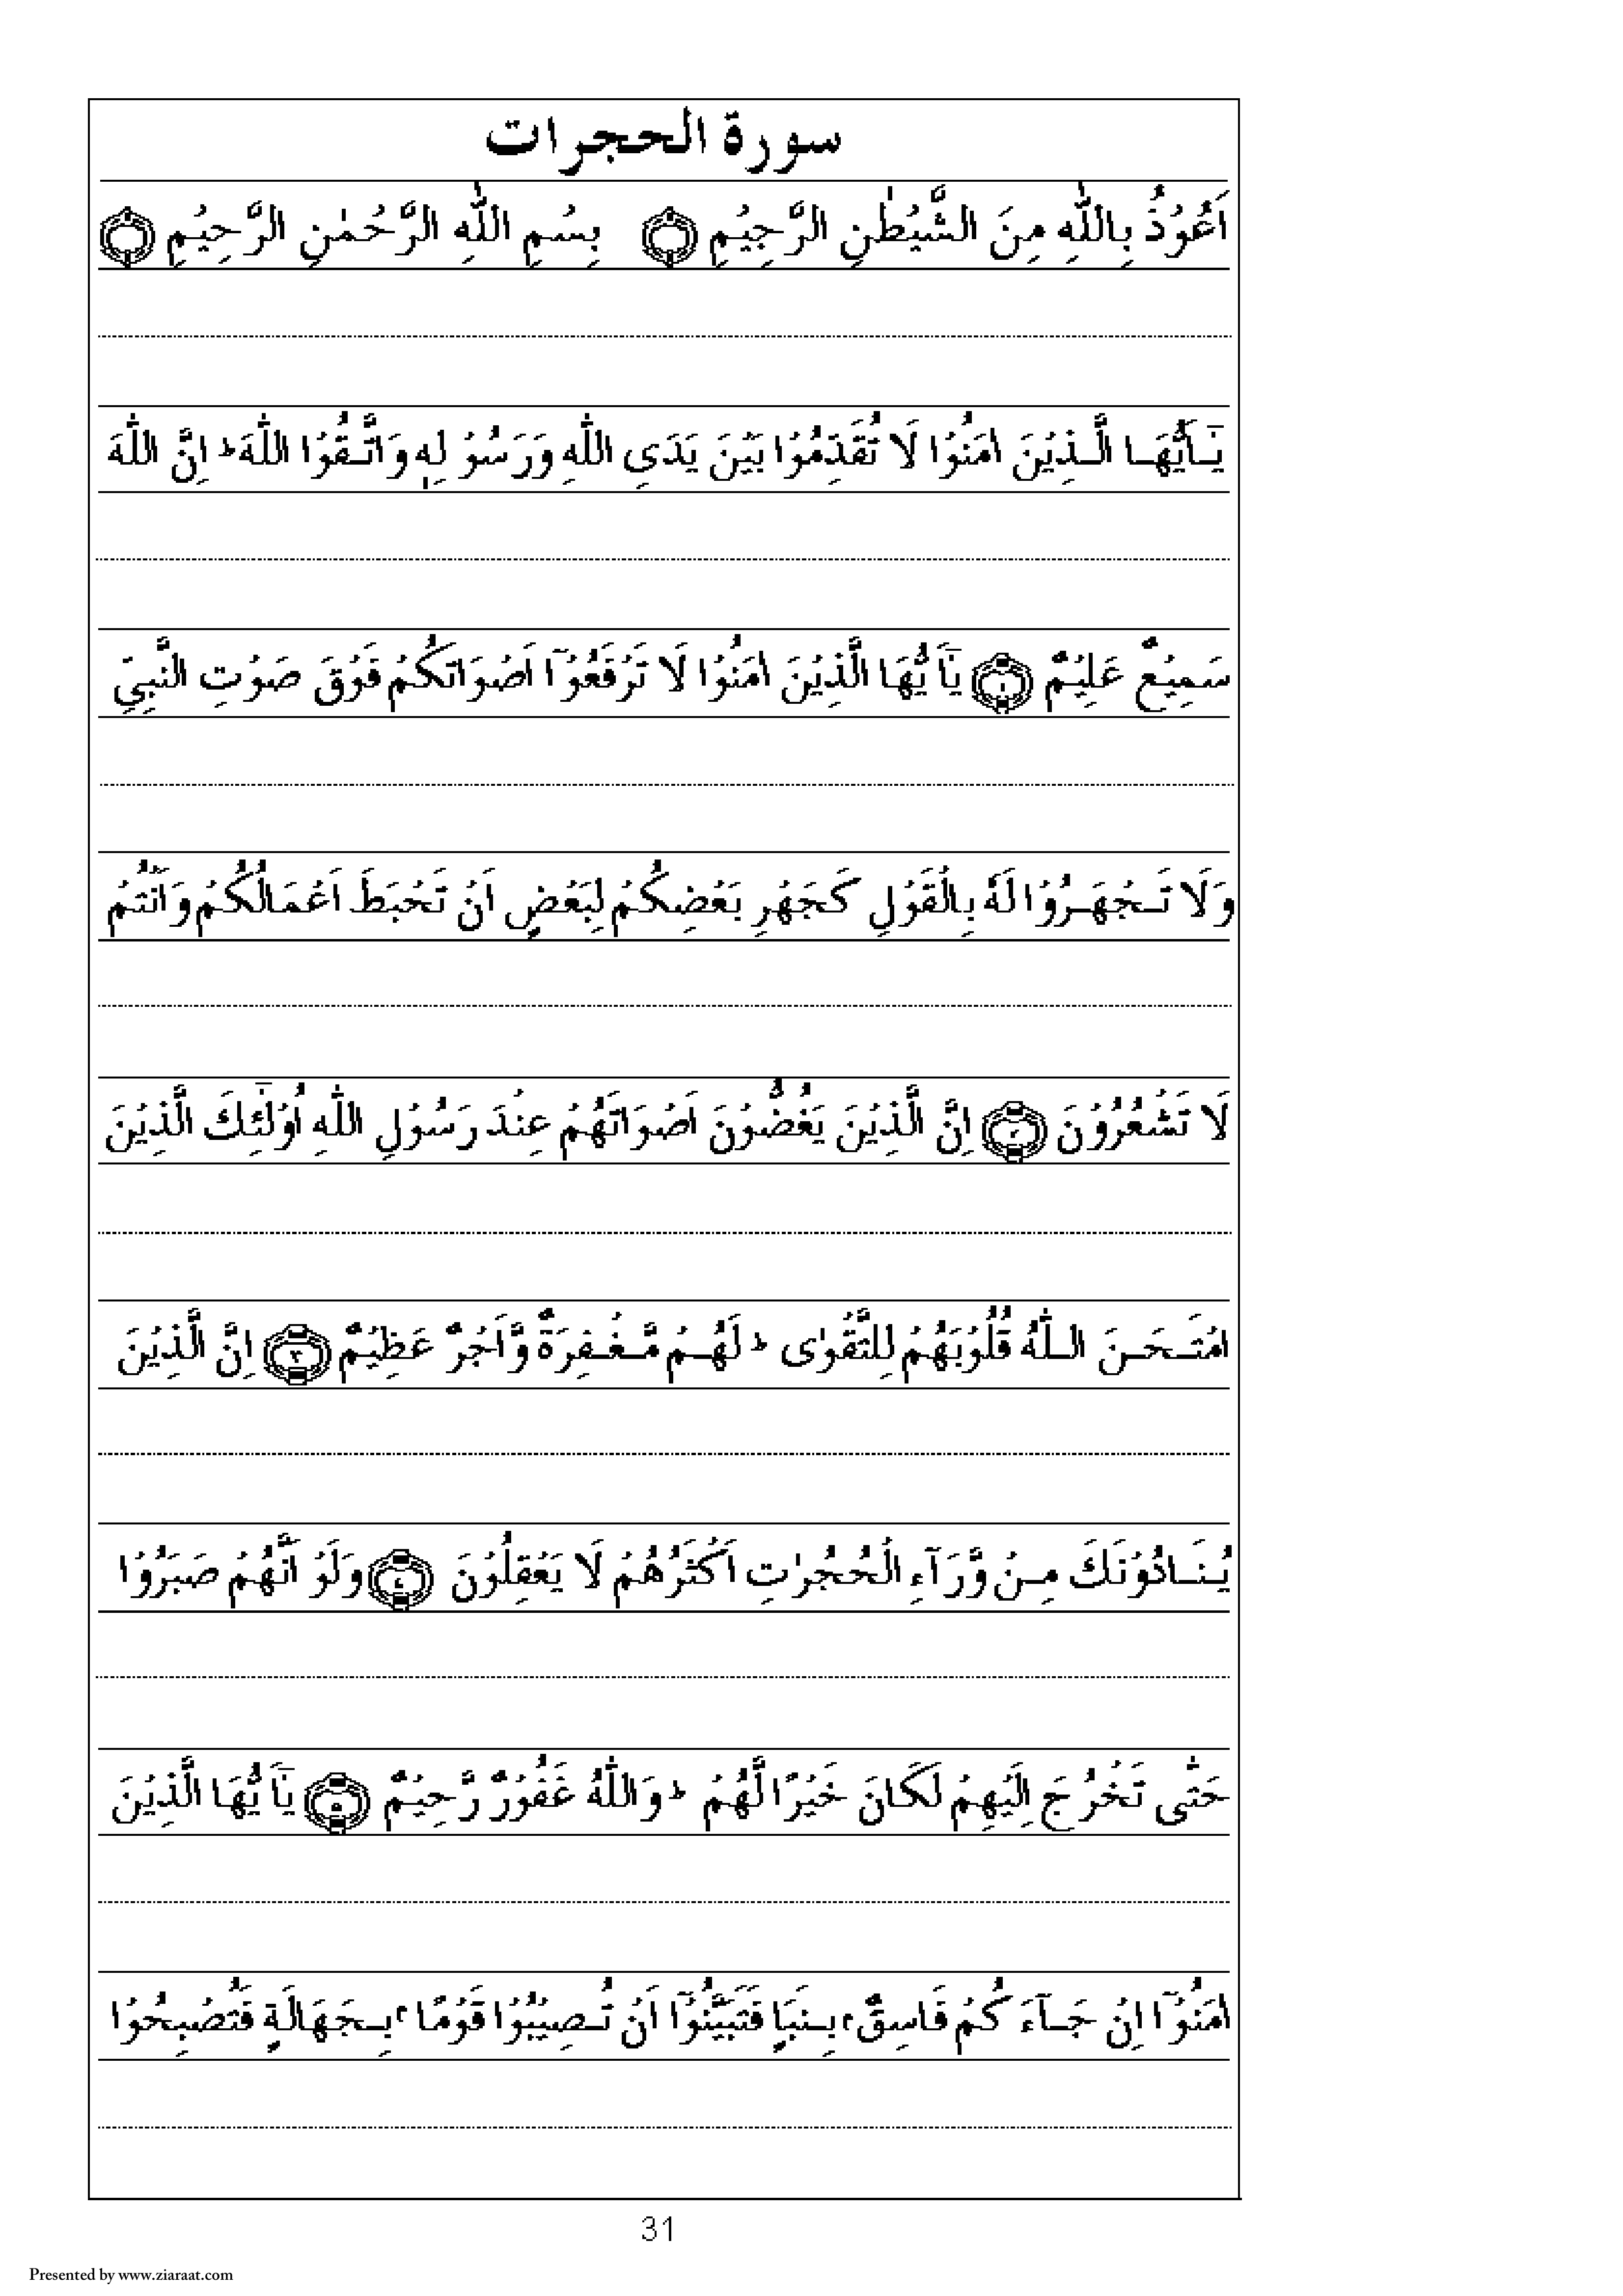 سورة الحجرات
اَعُوْذُ بِاللّٰهِ مِنَ الشَّيْطٰنِ الرَّجِيْمِ ۝ بِسْمِ اللّٰهِ الرَّحْمٰنِ الرَّحِيْمِ ۝
يٰٓاَيُّهَا الَّذِيْنَ اٰمَنُوْا لَا تُقَدِّمُوْا بَيْنَ يَدَىِ اللّٰهِ وَرَسُوْلِهٖ وَاتَّقُوا اللّٰهَ ؕ اِنَّ اللّٰهَ
سَمِيْعٌ عَلِيْمٌ ۝۱ يٰٓاَيُّهَا الَّذِيْنَ اٰمَنُوْا لَا تَرْفَعُوْٓا اَصْوَاتَكُمْ فَوْقَ صَوْتِ النَّبِيِّ
وَلَا تَجْهَرُوْا لَهٗ بِالْقَوْلِ كَجَهْرِ بَعْضِكُمْ لِبَعْضٍ اَنْ تَحْبَطَ اَعْمَالُكُمْ وَاَنْتُمْ
لَا تَشْعُرُوْنَ ۝۲ اِنَّ الَّذِيْنَ يَغُضُّوْنَ اَصْوَاتَهُمْ عِنْدَ رَسُوْلِ اللّٰهِ اُولٰٓئِكَ الَّذِيْنَ
امْتَحَنَ اللّٰهُ قُلُوْبَهُمْ لِلتَّقْوٰى ؕ لَهُمْ مَّغْفِرَةٌ وَّاَجْرٌ عَظِيْمٌ ۝۳ اِنَّ الَّذِيْنَ
يُنَادُوْنَكَ مِنْ وَّرَآءِ الْحُجُرٰتِ اَكْثَرُهُمْ لَا يَعْقِلُوْنَ ۝٤ وَلَوْ اَنَّهُمْ صَبَرُوْا
حَتّٰى تَخْرُجَ اِلَيْهِمْ لَكَانَ خَيْرًا لَّهُمْ ؕ وَاللّٰهُ غَفُوْرٌ رَّحِيْمٌ ۝۵ يٰٓاَيُّهَا الَّذِيْنَ
اٰمَنُوْٓا اِنْ جَآءَكُمْ فَاسِقٌۢ بِنَبَاٍ فَتَبَيَّنُوْٓا اَنْ تُصِيْبُوْا قَوْمًاۢ بِجَهَالَةٍ فَتُصْبِحُوْا
31
Presented by www.ziaraat.com